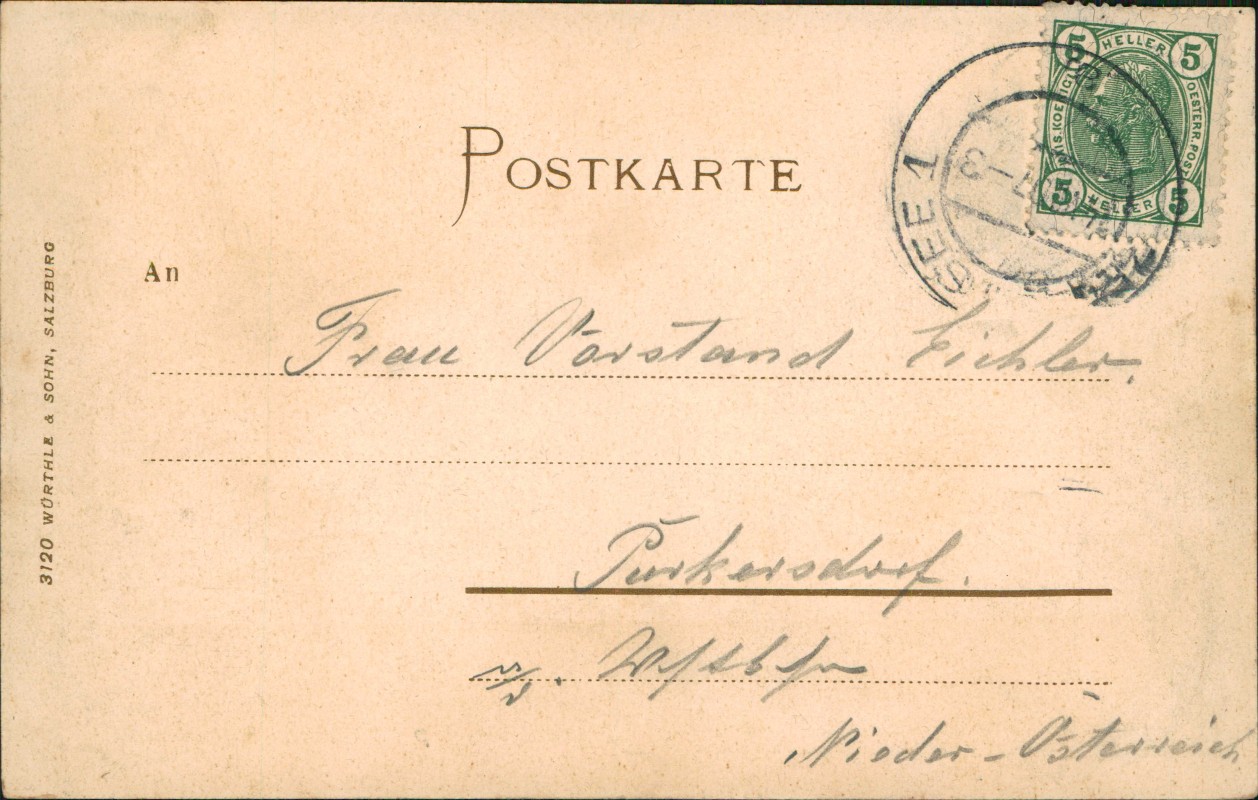 POSTKARTE
5 HELLER 5
OESTERR. POST
5 HELLER 5
SEE 1
An
Frau Vorstand Eichler.
Purkersdorf.
a/d. Wstbhn
Nieder-Österreich
3120 WÜRTHLE & SOHN, SALZBURG